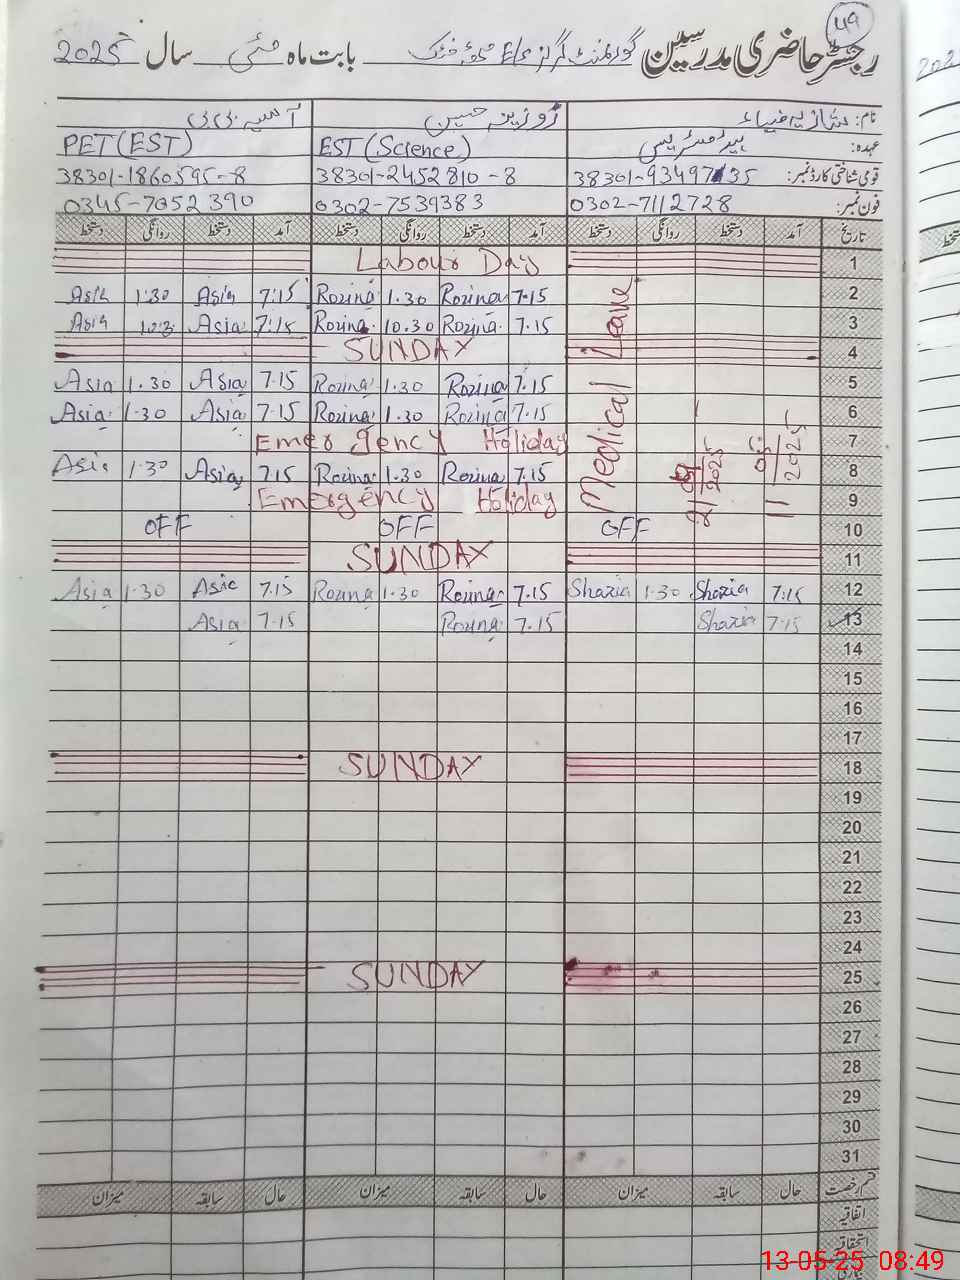 49
رجسٹر حاضری مدرسین گورنمنٹ گرلز بابت ماہ مئی سال 2025
نام: شازیہ ضیاء روزینہ حسین آسیہ بی بی
عہدہ: ہیڈ مسٹریس EST (Science) PET (EST)
قومی شناختی کارڈ نمبر: 38301-2452810-8 38301-1860595-8
فون نمبر: 0302-7112728 0302-7539383 0345-7052390
تاریخ آمد دستخط روانگی دستخط آمد دستخط روانگی دستخط آمد دستخط روانگی دستخط
Labour Day 1
Asia 1:30 Asia 7:15 Rozina 1.30 Rozina 7.15 2
Asia 10.3 Asia 7:15 Rozina 10.30 Rozina 7.15 3
SUNDAY 4
Asia 1.30 Asia 7.15 Rozina 1.30 Rozina 7.15 5
Asia 1.30 Asia 7.15 Rozina 1.30 Rozina 7.15 6
Emergency Holiday 7
Asia 1.30 Asia 7.15 Rozina 1.30 Rozina 7.15 8
Emergency Holiday 9
Medical Leave
2025
11 2025
OFF OFF OFF 10
SUNDAY 11
Asia 1.30 Asia 7.15 Rozina 1.30 Rozina 7.15 Shazia 1.30 Shazia 7:15 12
Asia 7.15 Rozina 7.15 Shazia 7.15 13
14
15
16
17
SUNDAY 18
19
20
21
22
23
24
SUNDAY 25
26
27
28
29
30
31
قسم رخصت حال سابقہ میزان حال سابقہ میزان حال سابقہ میزان
اتفاقیہ
استحقاقیہ
13-05-25 08:49